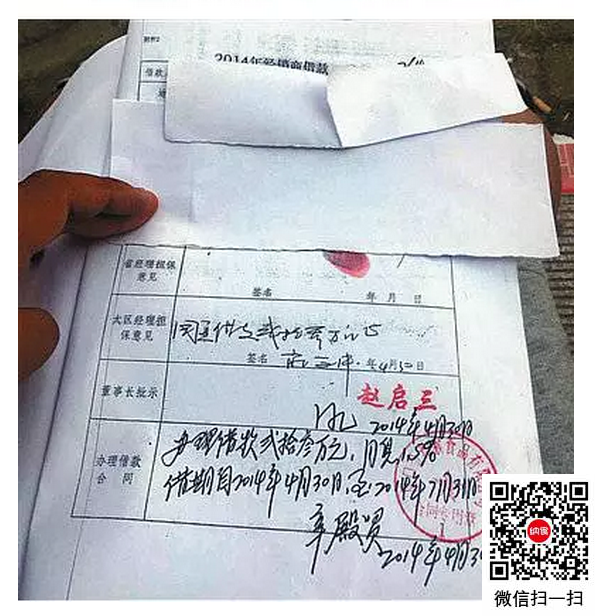 附件2
2014年经销商借款
借款
省经理担保
意见
签名 年 月 日
大区经理担
保意见
同意借支贰拾叁万元
签名 年4月30日
董事长批示
赵启三
2014年4月30日
办理借款
合 同
办理借款贰拾叁万元,月息1.5%
借期自2014年4月30日,至2014年7月31日
合同专用章
辛殿贤
2014年4月30
纳食
微信扫一扫